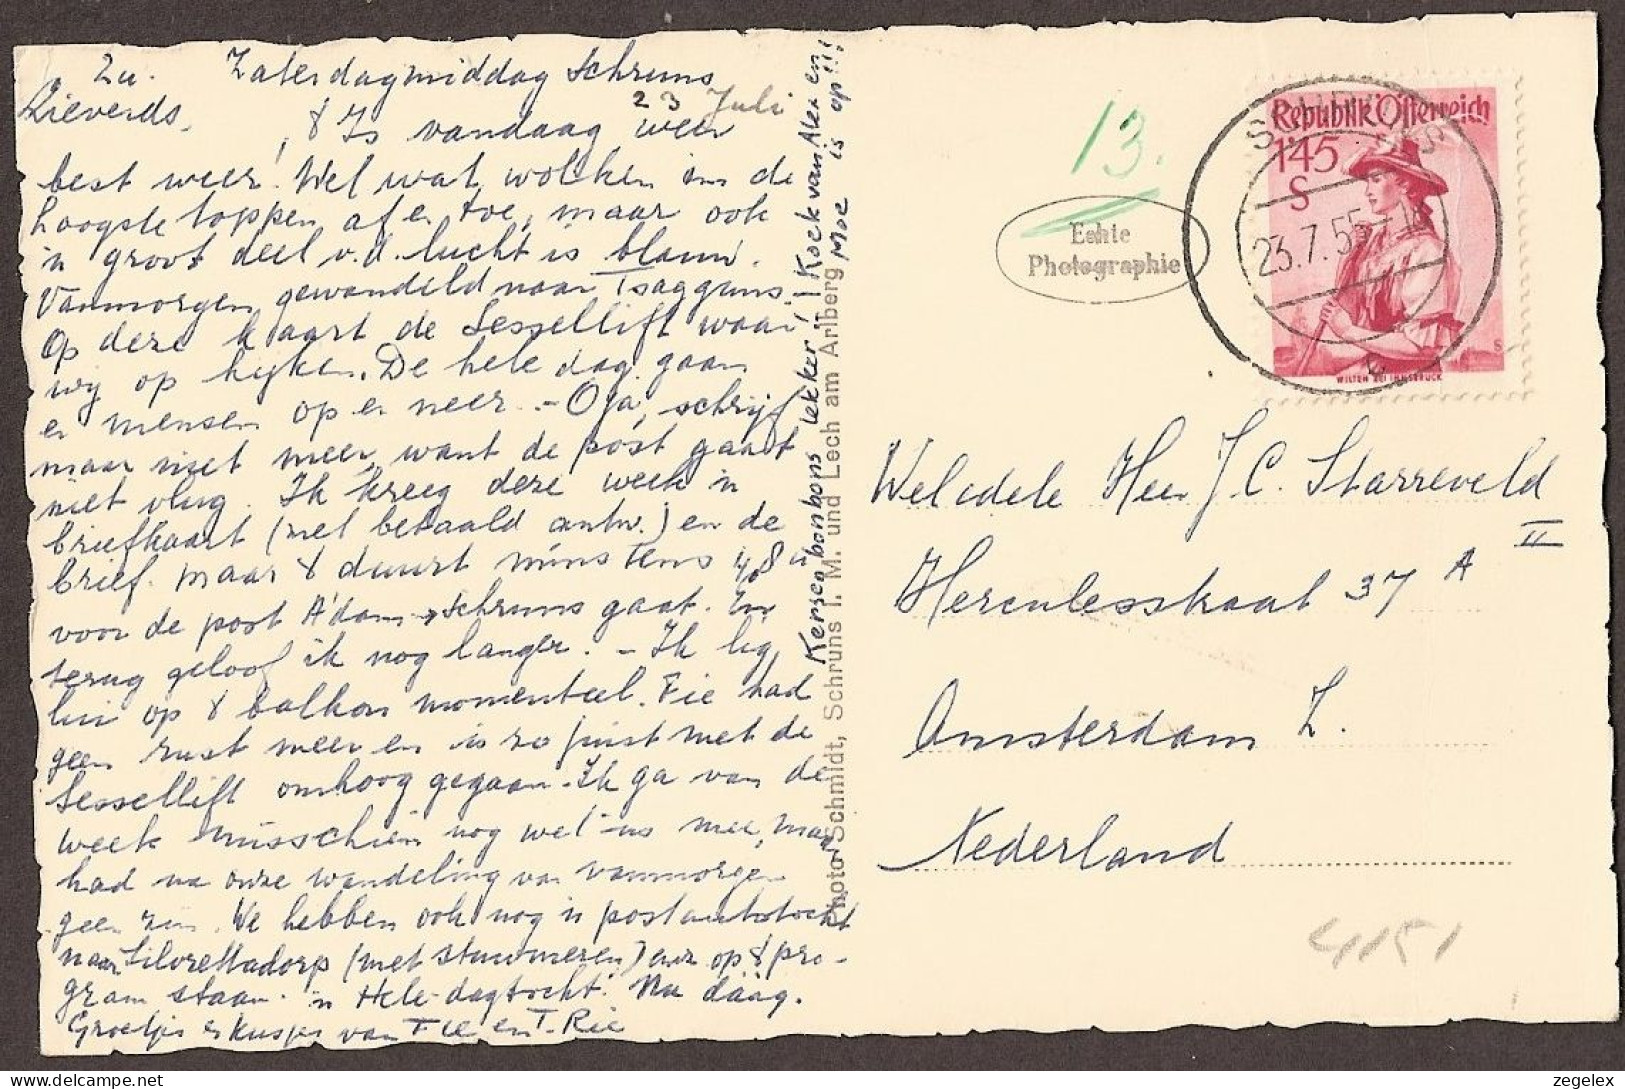 2u. Zaterdagmiddag Schruns
23 Juli
Lieverds,
't Is vandaag weer
best weer! Wel wat wolken om de
hoogste toppen af en toe, maar ook
'n groot deel v.d. lucht is blauw.
Vanmorgen gewandeld naar Tsagguns.
Op deze kaart de Sessellift waar
wij op kijken. De hele dag gaan
er mensen op en neer. - O ja, schrijf
maar niet meer, want de post gaat
niet vlug. Ik kreeg deze week 'n
briefkaart (met betaald antw.) en de
brief. Maar 't duurt minstens 48 u
voor de post A'dam → Schruns gaat. En
terug geloof ik nog langer. - Ik lig
hier op 't balkon momenteel. Fie had
geen rust meer en is zo juist met de
Sessellift omhoog gegaan. Ik ga van de
week misschien nog wel 'ns mee, maar
had na onze wandeling van vanmorgen
geen zin. We hebben ook nog 'n postautotocht
naar Silvrettadorp (met stuwmeren) enz op 't pro-
gram staan. 'n Hele-dagtocht! Nu dáág.
Groetjes en kusjes van Fie en T. Rie
Kersenbonbons lekker! Koek van Alex en
Moe is op!!!
Photo Schmidt, Schruns i. M. und Lech am Arlberg
13.
Echte
Photographie
Republik Österreich
145
S
WILTEN BEI INNSBRUCK
SCHRUNS
23.7.55
Weledele Heer J C. Starreveld
Herculesstraat 37 A II
Amsterdam Z.
Nederland
4151
zegelex